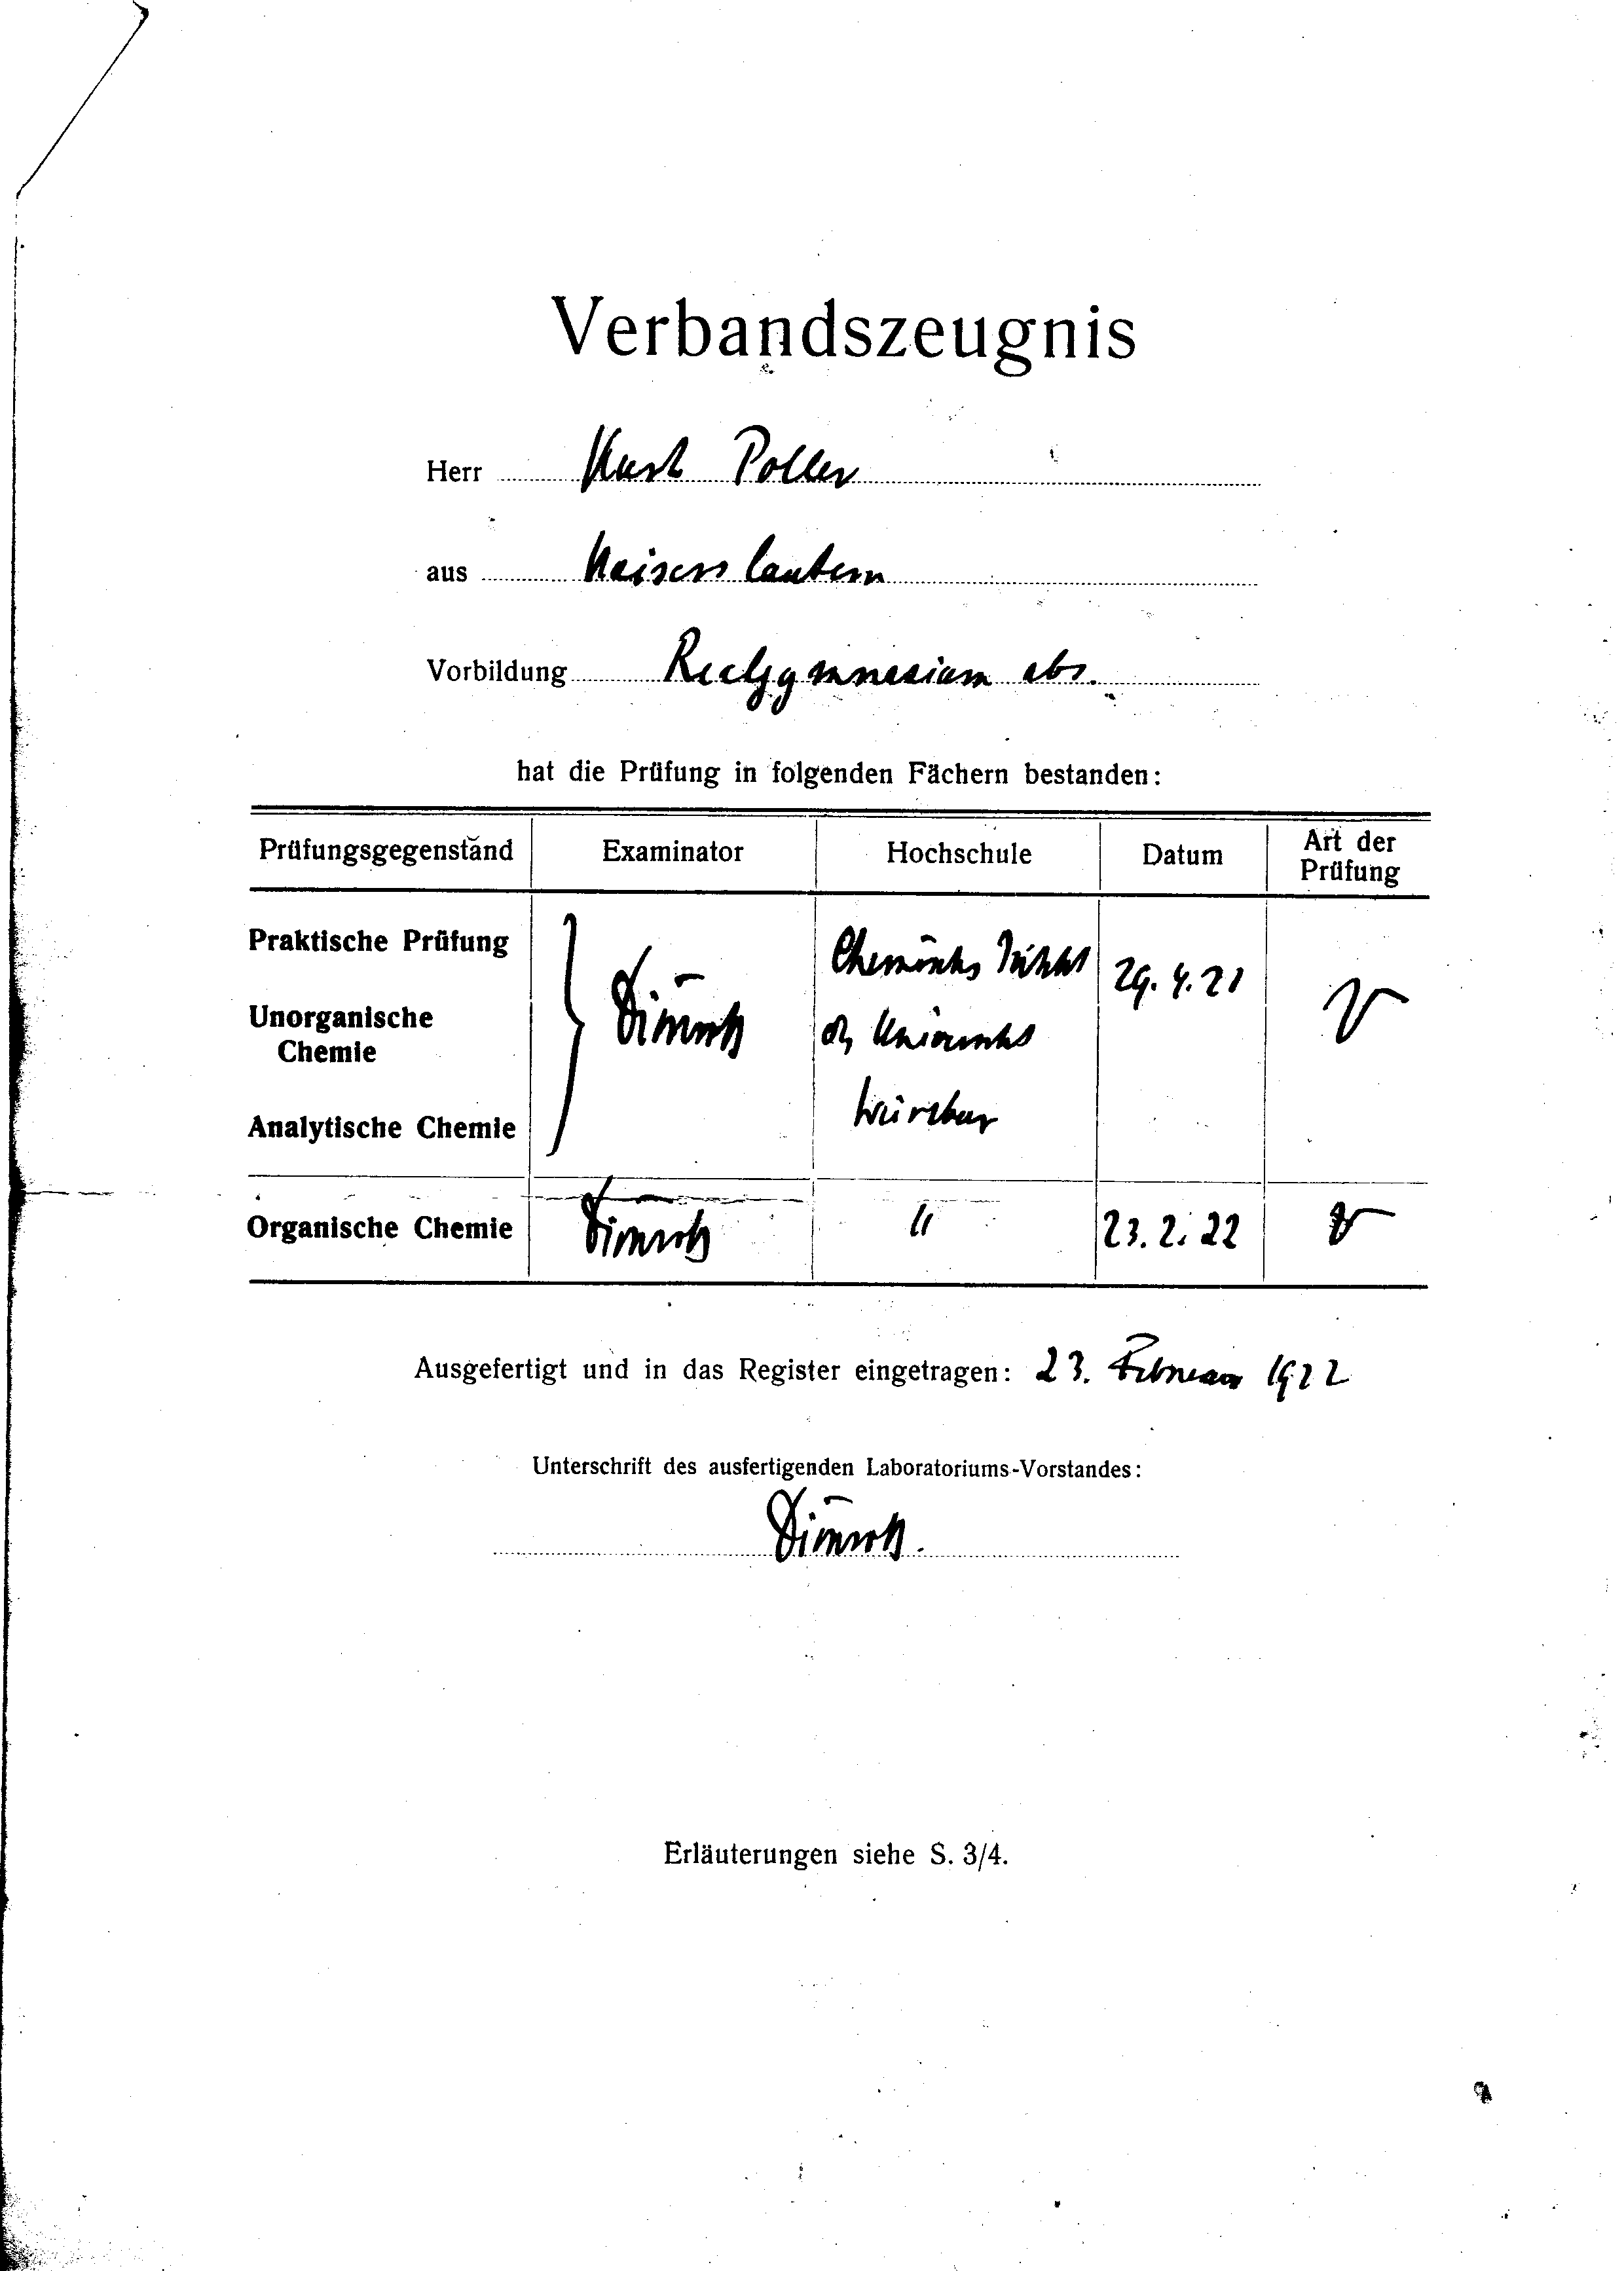 Verbandszeugnis
Herr Kurt Poller
aus Kaiserslautern
Vorbildung Realgymnasium abs.
hat die Prüfung in folgenden Fächern bestanden:
Prüfungsgegenstand Examinator Hochschule Datum Art der Prüfung
Praktische Prüfung
Unorganische
Chemie
Analytische Chemie
Dimroth
Chemisches Institut
der Universität
Würzburg
29. 4. 21
V
Organische Chemie Dimroth " 23. 2. 22 V
Ausgefertigt und in das Register eingetragen: 23. Februar 1922
Unterschrift des ausfertigenden Laboratoriums-Vorstandes:
Dimroth.
Erläuterungen siehe S. 3/4.